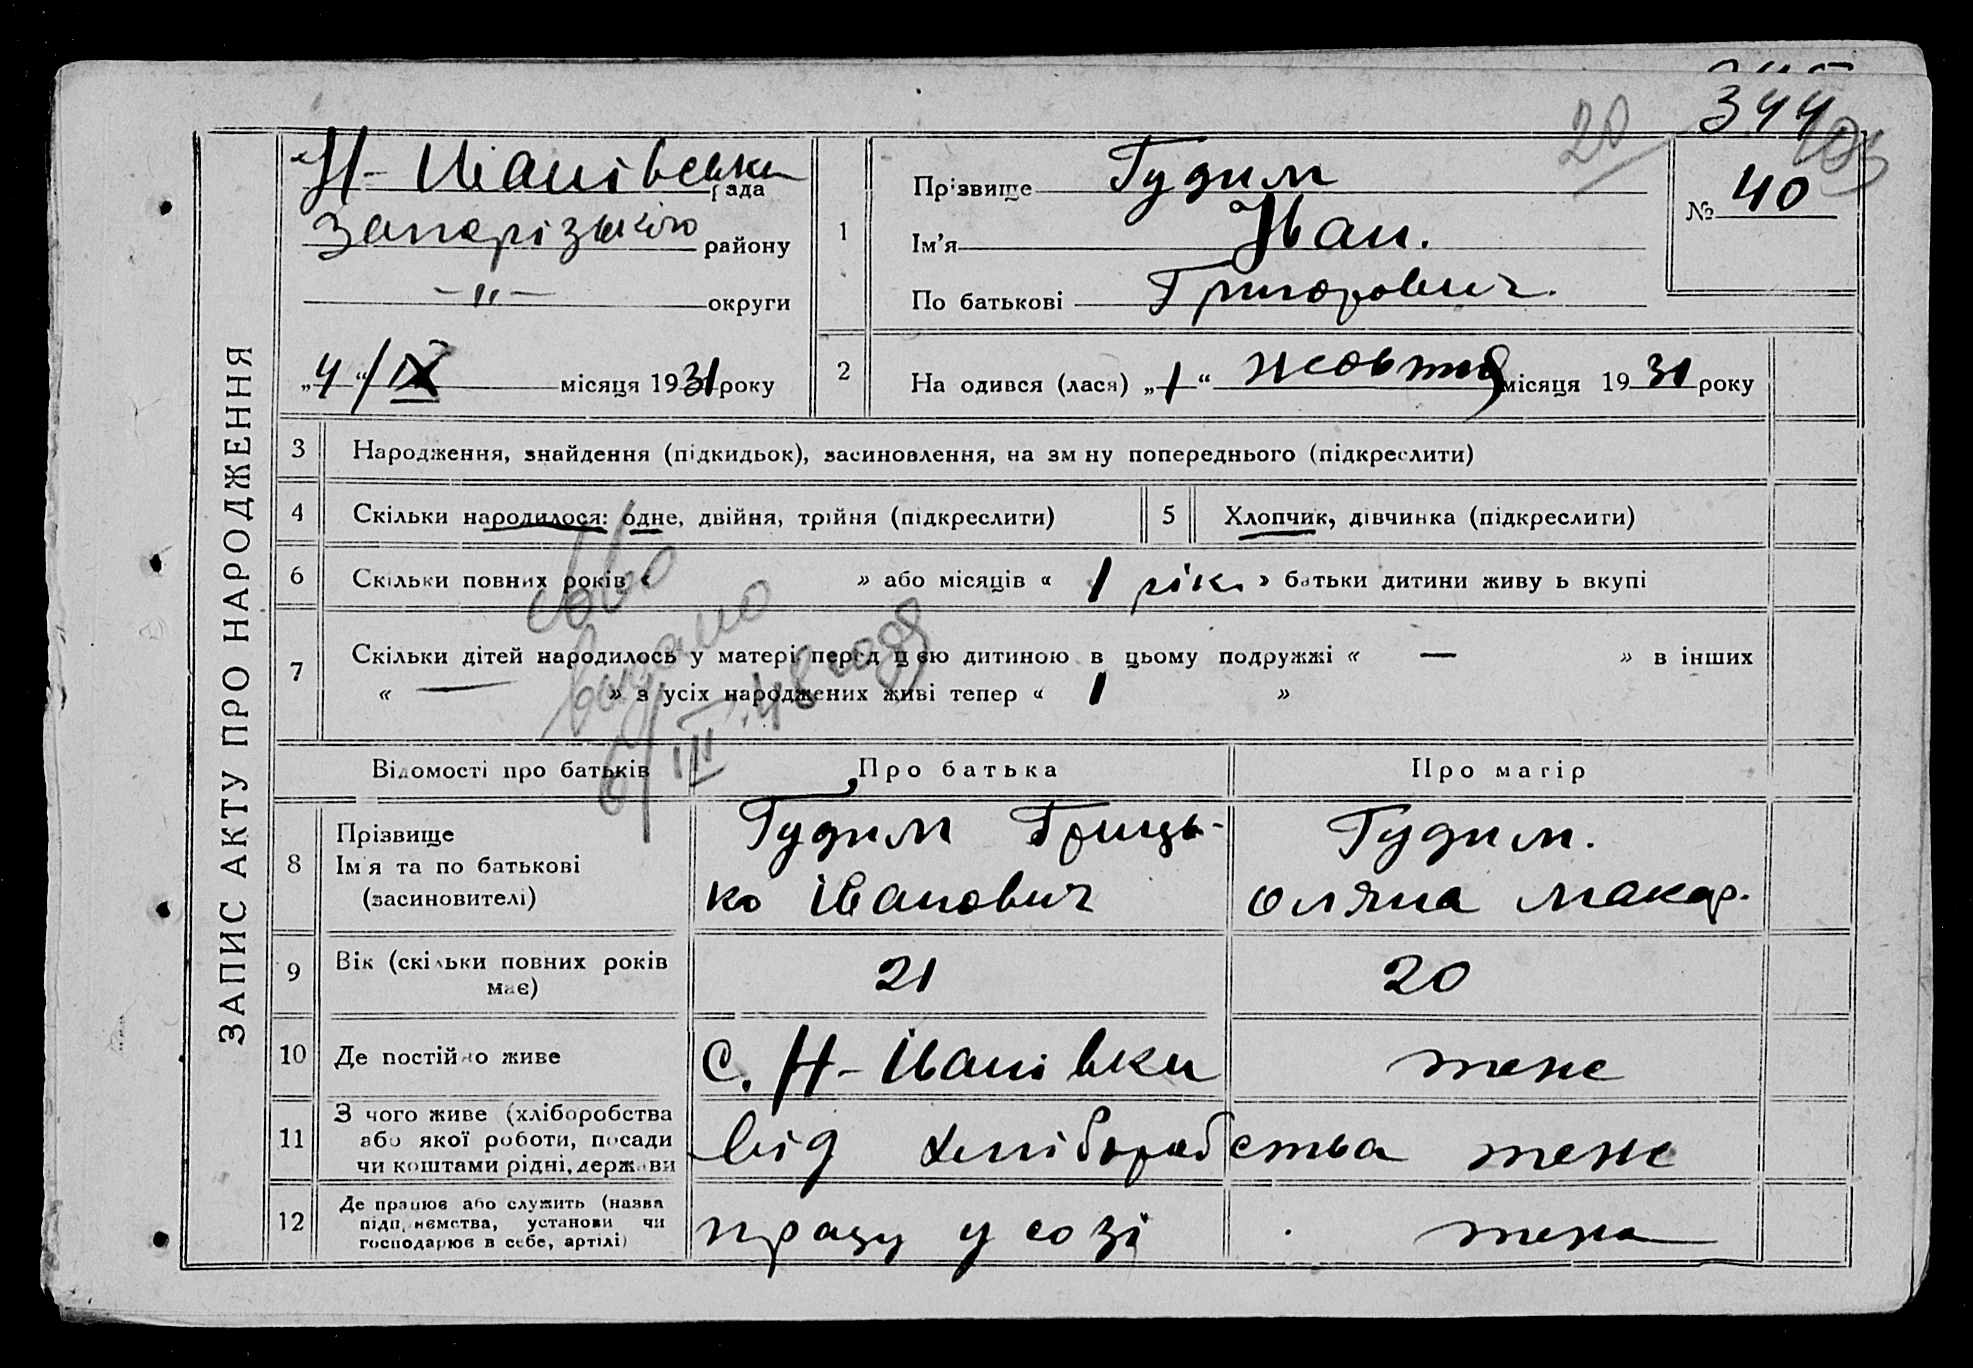 344
20
ЗАПИС АКТУ ПРО НАРОДЖЕННЯ
Н-Іванівська рада
Запорізького району
-"- округи
„4“/IX місяця 1931 року
1
Прізвище Гудим
Ім'я Іван.
По батькові Григорович.
№ 40
2
На одився (лася) „1“ жовтня місяця 1931 року
3 Народження, знайдення (підкидьок), засиновлення, на зм ну попереднього (підкреслити)
4 Скільки народилося: одне, двійня, трійня (підкреслити) 5 Хлопчик, дівчинка (підкреслити)
6 Скільки повних років « » або місяців « 1 рік » батьки дитини живу ь вкупі
7 Скільки дітей народилось у матері перед цією дитиною в цьому подружжі « — » в інших
« — » з усіх народжених живі тепер « 1 »
видано
6/III.48 года
Відомості про батьків Про батька Про матір
8 Прізвище
Ім'я та по батькові
(засиновителі)
Гудим Грицько-
ко Іванович
Гудим.
Оляна Макар.
9 Вік (скільки повних років
має)
21 20
10 Де постійно живе с. Н-Іванівки теже
11 З чого живе (хліборобства
або якої роботи, посади
чи коштами рідні, держави
від хліборобства теже
12 Де працює або служить (назва
підприємства, установи чи
господарює в себе, артілі)
працу у созі теже